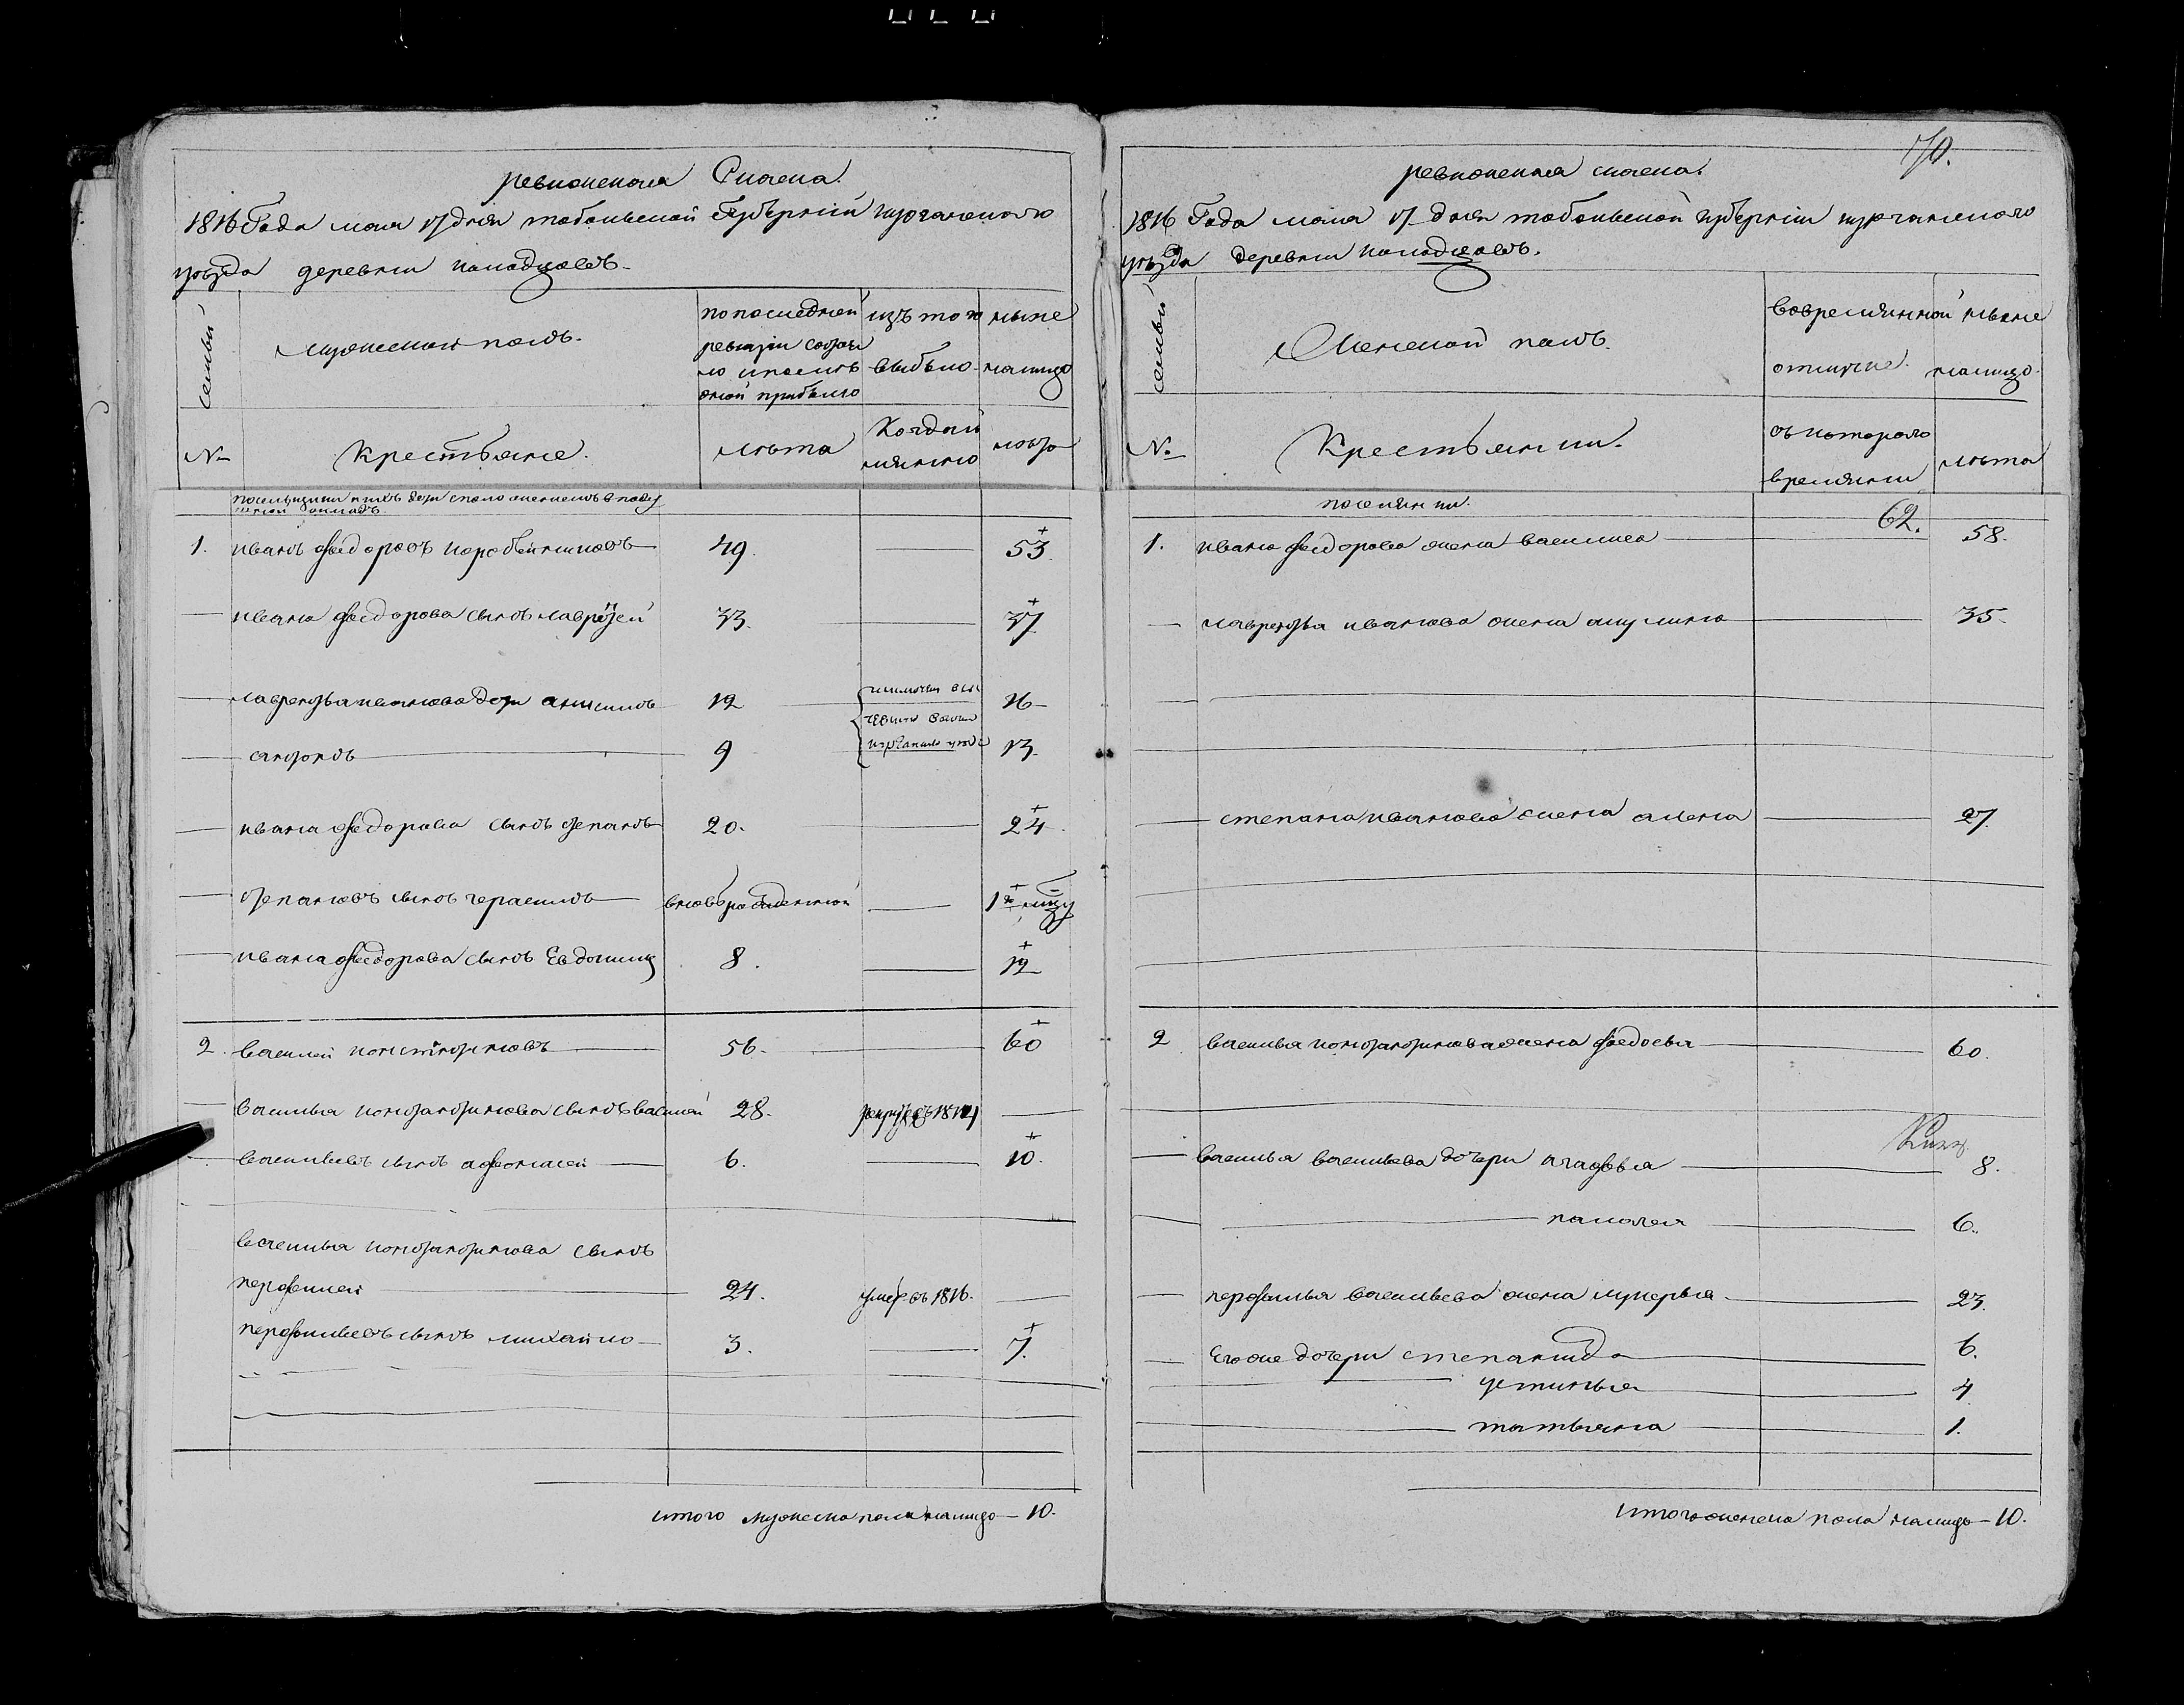 ревизская Сказка.
1816 Года мая 17 дня тобольской Губернии курганского
уезда деревни колодцовъ.
семьи
мужескои полъ.
по последней ревизии состояло и после оной прибыло
изъ того выбыло
ныне налицо
№
крестьяне.
лета
Когда и
лета
поселщики и ихъ дети с положениемъ в
окладъ
1. иванъ федоровъ коробейниковъ 49. 53.
ивана федорова сынъ лаврентей 33. 37
лаврентья иванова дети анисимъ 12 16
9 13.
ивана федорова сынъ степанъ 20. 24.
степановъ сынъ герасимъ вновьрожденной
ивана федорова сынъ Евдоким 8. 12
2. василей констнтиновъ 56. 60
василья константинова сынъ василей 28. рекрут въ 1814
васильевъ сынъ афонасей 6. 10.
василья константинова сынъ
перфилей 24. умре въ 1816.
перфильевъ сынъ михайло 3. 7.
итого мужеска пола налицо — 10.
70.
ревизская сказка.
1816 Года мая 17 дня тобольской губернии курганского
уезда деревни колодцовъ.
семьи
Женской полъ.
вовремянной отлучке
ныне налицо.
№
Крестьянки.
съ котораго времяни
лета
62.
1. ивана федорова жена василиса 58.
лаврентья иванова жена акулина 35.
степана иванова жена алена 27.
2 василья константинова жена федосья 60.
василья васильева дочери агафья 8.
палагея 6.
перфилья васильева жена лукерья 23.
Его же дочери степанида 6.
устинья 4
татьяна 1.
итого женска пола налицо — 10.